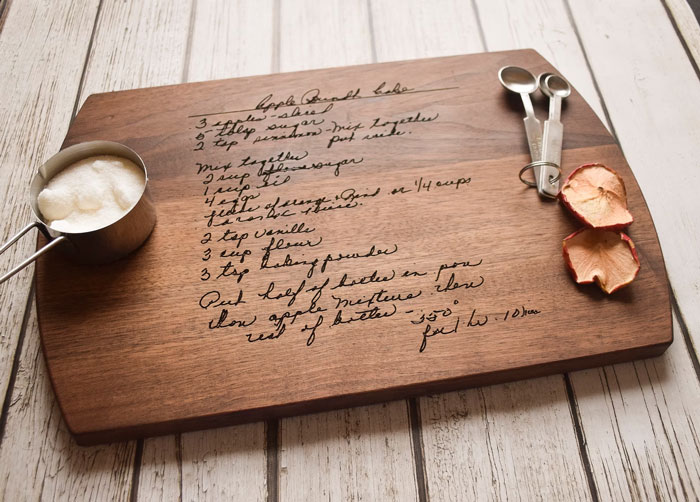 Apple Brunch Cake
3 apples - sliced
5 tblsp sugar
2 tsp cinnamon - Mix together
put aside.
Mix together
2 cup sugar
1 cup oil
4 eggs
juice of orange & rind or 1/4 cups
orange juice.
2 tsp vanilla
3 cup flour
3 tsp baking powder
Put half of batter in pan
then apple mixture then
rest of batter - 350°
for 1 hr. 10